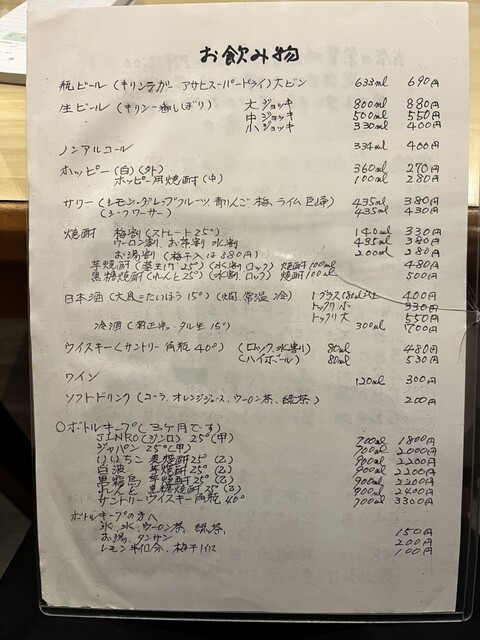 お飲み物
瓶ビール (キリンラガー アサヒスーパードライ) 大ビン 633ml 690円
生ビール (キリン一番しぼり) 大ジョッキ 800ml 880円
中ジョッキ 500ml 550円
小ジョッキ 330ml 400円
ノンアルコール 334ml 400円
ホッピー (白) (外) 360ml 270円
ホッピー用焼酎 (中) 100ml 280円
サワー (レモン、グレープフルーツ、青りんご、梅、ライム、巨峰) 435ml 380円
(シークワーサー) 435ml 430円
焼酎 梅割 (ストレート25°) 140ml 330円
ウーロン割、お茶割、水割 435ml 380円
お湯割 (梅干入は380円) 200ml 280円
芋焼酎 25°) (水割 ロック) 焼酎100ml 480円
黒糖焼酎 (れんと25°) (水割 ロック) 焼酎100ml 500円
日本酒 15°) (燗、常温、冷) 1グラス 180ml 400円
トックリ小 330円
トックリ大 550円
冷酒 (菊正宗、タル生 15°) 300ml 700円
ウイスキー (サントリー角瓶 40°) (ロック、水割) 80ml 480円
(ハイボール) 80ml 530円
ワイン 120ml 300円
ソフトドリンク (コーラ、オレンジジュース、ウーロン茶、緑茶) 200円
○ボトルキープ (3ヶ月です)
JINRO (ジンロ) 25° (甲) 700ml 1800円
ジャパン 25° (甲) 700ml 2000円
いいちこ 麦焼酎 25° (乙) 900ml 2200円
白波 芋焼酎 25° (乙) 900ml 2200円
黒霧島 芋焼酎 25° (乙) 900ml 2200円
れんと 黒糖焼酎 25° (乙) 900ml 2400円
サントリーウイスキー角瓶 40° 700ml 3300円
ボトルキープの方へ
氷、水、ウーロン茶、緑茶、 150円
お湯、タンサン 200円
レモン半個分、梅干1個 100円